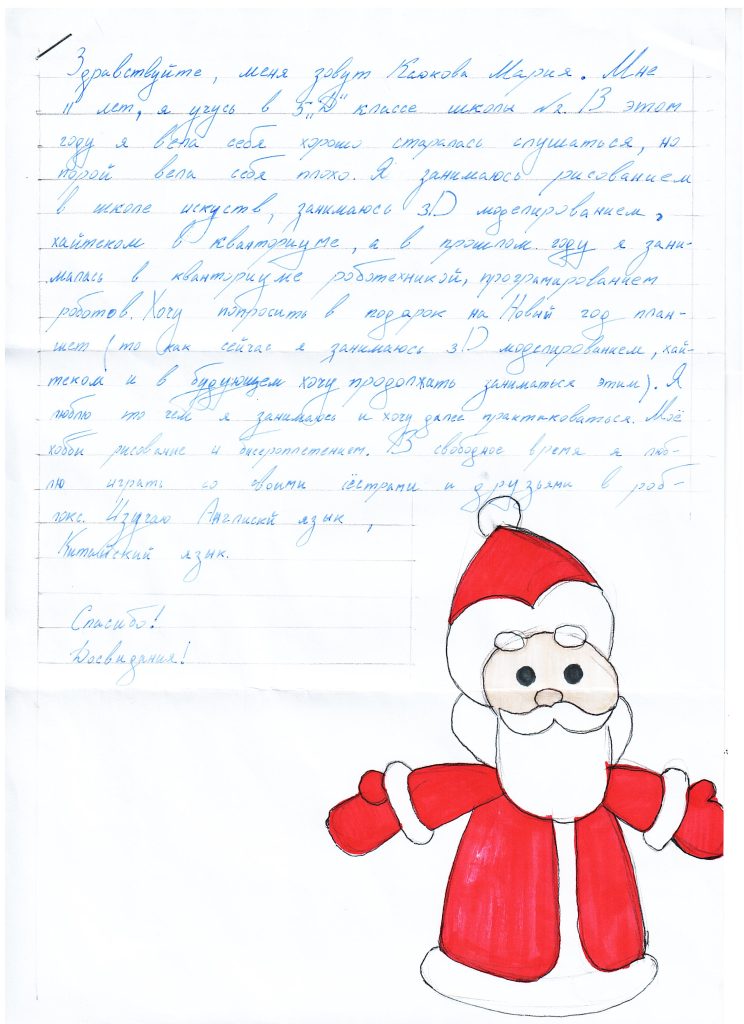 Здравствуйте, меня зовут Клюкова Мария. Мне
11 лет, я учусь в 5 „Д" классе школы №2. В этом
году я вела себя хорошо старалась слушаться, но
порой вела себя плохо. Я занимаюсь рисованием
в школе искуств, занимаюсь 3D моделированием,
хайтеком в кванториуме, а в прошлом году я зани-
малась в кванториуме роботехникой, програмированием
роботов. Хочу попросить в подарок на Новый год план-
шет (то как сейчас я занимаюсь 3D моделированием, хай-
теком и в будующем хочу продолжать заниматься этим). Я
люблю то чем я занимаюсь и хочу далее практиковаться. Моё
хобби рисование и бисероплетением. В свободное время я люб-
лю играть со своими сёстрами и друзьями в роб-
локс. Изучаю Англиски язык,
Китайский язык.
Спасибо!
Досвидания!